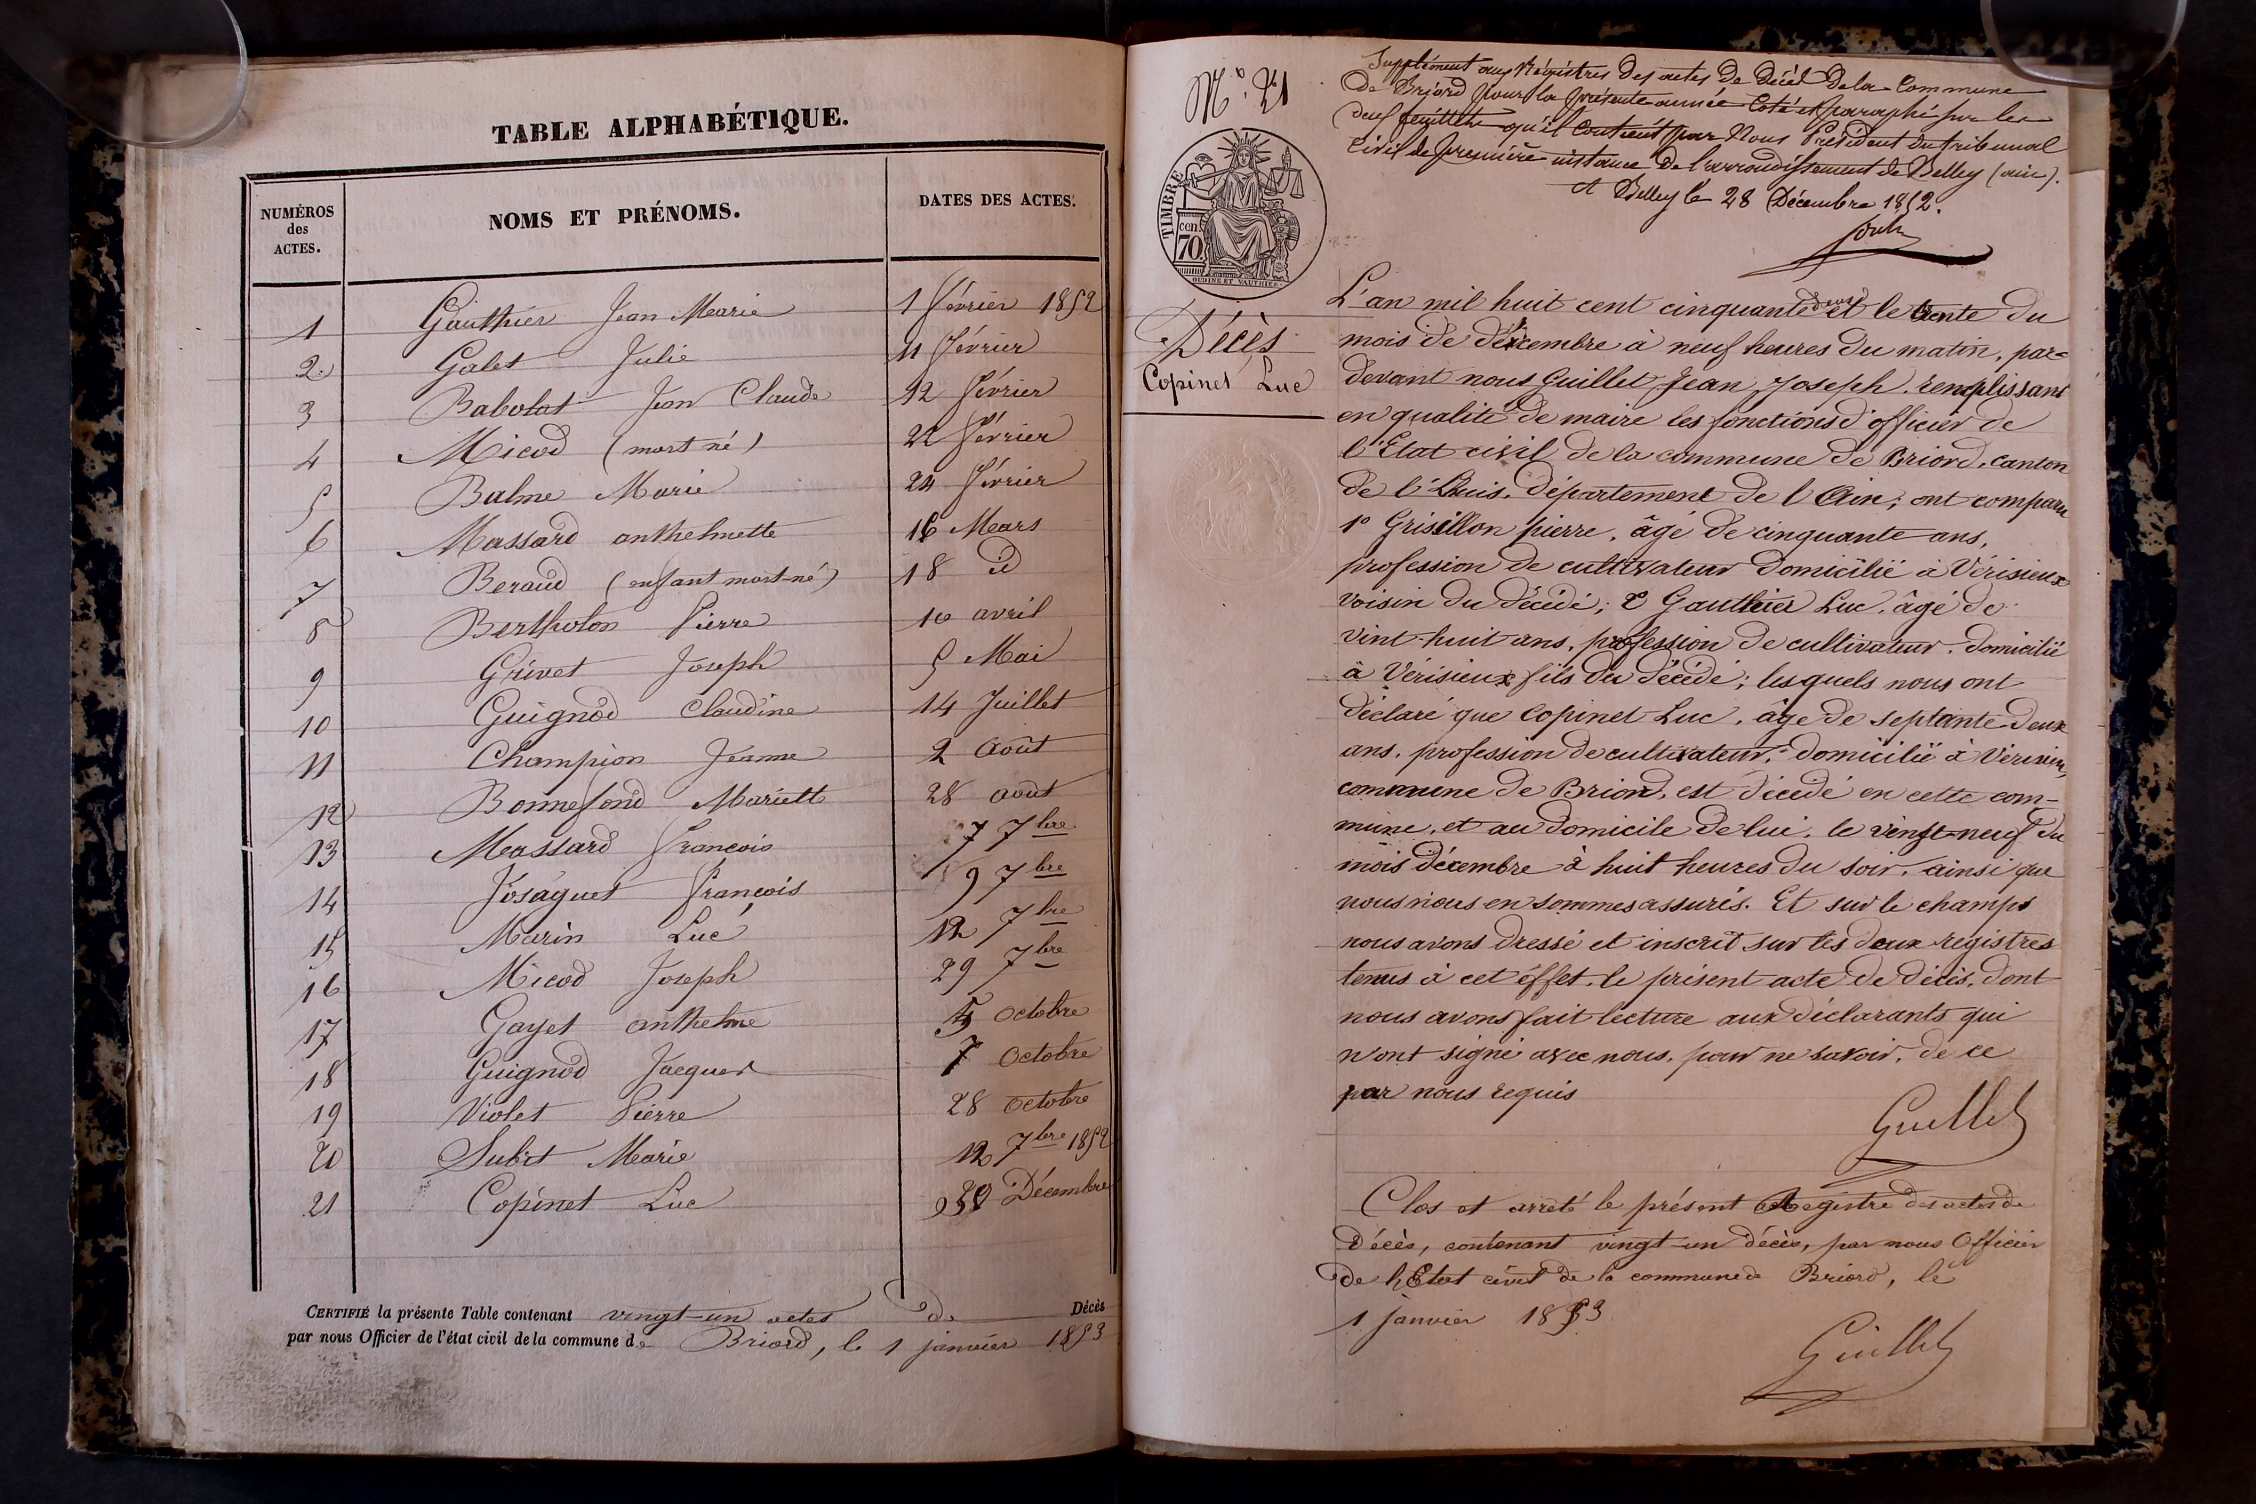 TABLE ALPHABÉTIQUE.
NUMÉROS des ACTES. NOMS ET PRÉNOMS. DATES DES ACTES.
1 Gauthier Jean Marie 1 février 1852
2. Galet Julie 11 février
3 Babolat Jean Claude 12 février
4 Micod (mort né) 22 février
5 Balme Marie 24 février
6 Massard anthelmette 16 Mars
7 Beraud (enfant mort-né) 18 id
8 Bertholon Pierre 10 avril
9 Grivet Joseph 5 Mai
10 Guignod Claudine 14 Juillet
11 Champion Jeanne 2 août
12 Bonnefond Mariette 28 août
13 Massard francois 7 7bre
14 Josaguet françois 9 7bre
15 Marin Luc 12 7bre
16 Micod Joseph 29 7bre
17 Gayet anthelme 5 octobre
18 Guignod Jacques 7 octobre
19 Violet Pierre 28 octobre
20 Subit Marie 12 7bre 1852
21 Copinet Luc Décembre
CERTIFIÉ la présente Table contenant vingt-un actes de Décès
par nous Officier de l'état civil de la commune de Briord, le 1 janvier 1853
N° 21
Supplément aux Régistres des actes de Décès de la Commune
de Briord pour la présente année Coté et paraphé sur les
deux feuillets qu'il contient par Nous Président du tribunal
Civil de première instance de l'arrondissement de Belley (ain).
A Belley le 28 Décembre 1852.
TIMBRE
70 cen.
OUDINÉ ET VAUTHIER.
Décès
Copinet Luc
L'an mil huit cent cinquante deux et le trente du
mois de décembre à neuf heures du matin, par=
devant nous Guillet Jean Joseph, remplissant
en qualité de maire les fonctions d'officier de
l'Etat civil de la commune de Briord, canton
de l'Huis, département de l'Ain; ont comparu
1° Grisillon pierre, âgé de cinquante ans,
profession de cultivateur domicilié à Vérisieux
voisin du décédé; 2° Gauthier Luc, âgé de
vint-huit ans, profession de cultivateur, domicilié
à Vérisieux fils du décédé; lesquels nous ont
déclaré que Copinet Luc, âge de septante-deux
ans, profession de cultivateur, domicilié à Vérisieux,
commune de Briord, est décédé en cette com-
mune, et au domicile de lui, le vingt-neuf du
mois décembre à huit heures du soir, ainsi que
nous nous en sommes assurés. Et sur le champs
nous avons dressé et inscrit sur les deux registres
tenus à cet éffet, le présent acte de décès, dont
nous avons fait lecture aux déclarants qui
n'ont signé avec nous, pour ne savoir, de ce
par nous requis
Guillet
Clos et arreté le présent Registre des actes de
Décès, contenant vingt-un décès, par nous Officier
de l'Etat civil de la commune de Briord, le
1 janvier 1853
Guillet